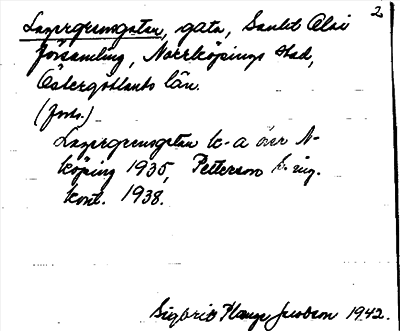 2
Lagergrensgatan, gata, Sankt Olai
församling, Norrköpings stad,
Östergötlands län.
(forts.)
Lagergrensgatan k-a över N-
köping 1935, Petterson b. ing.
kont. 1938.
Sigbrit Plange Jacobson 1942.